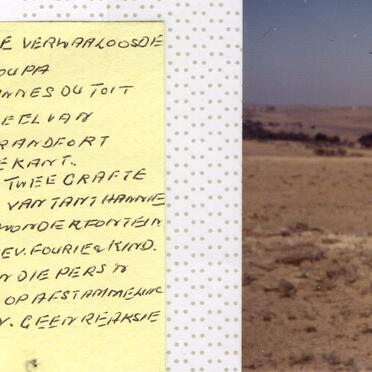 E VERWAALOOSDE
OUPA
NNES DU TOIT
EEL VAN
RANDFORT
EKANT.
TWEE GRAFTE
VAN TANT HANNIE
WONDERFONTEIN
EV. FOURIE & KIND.
N DIE PERS 'N
OP AFSTAMMELING
. GEEN REAKSIE